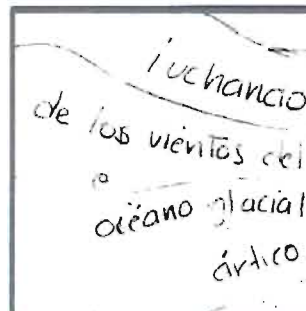 luchando
de los vientos del
océano glacial
ártico